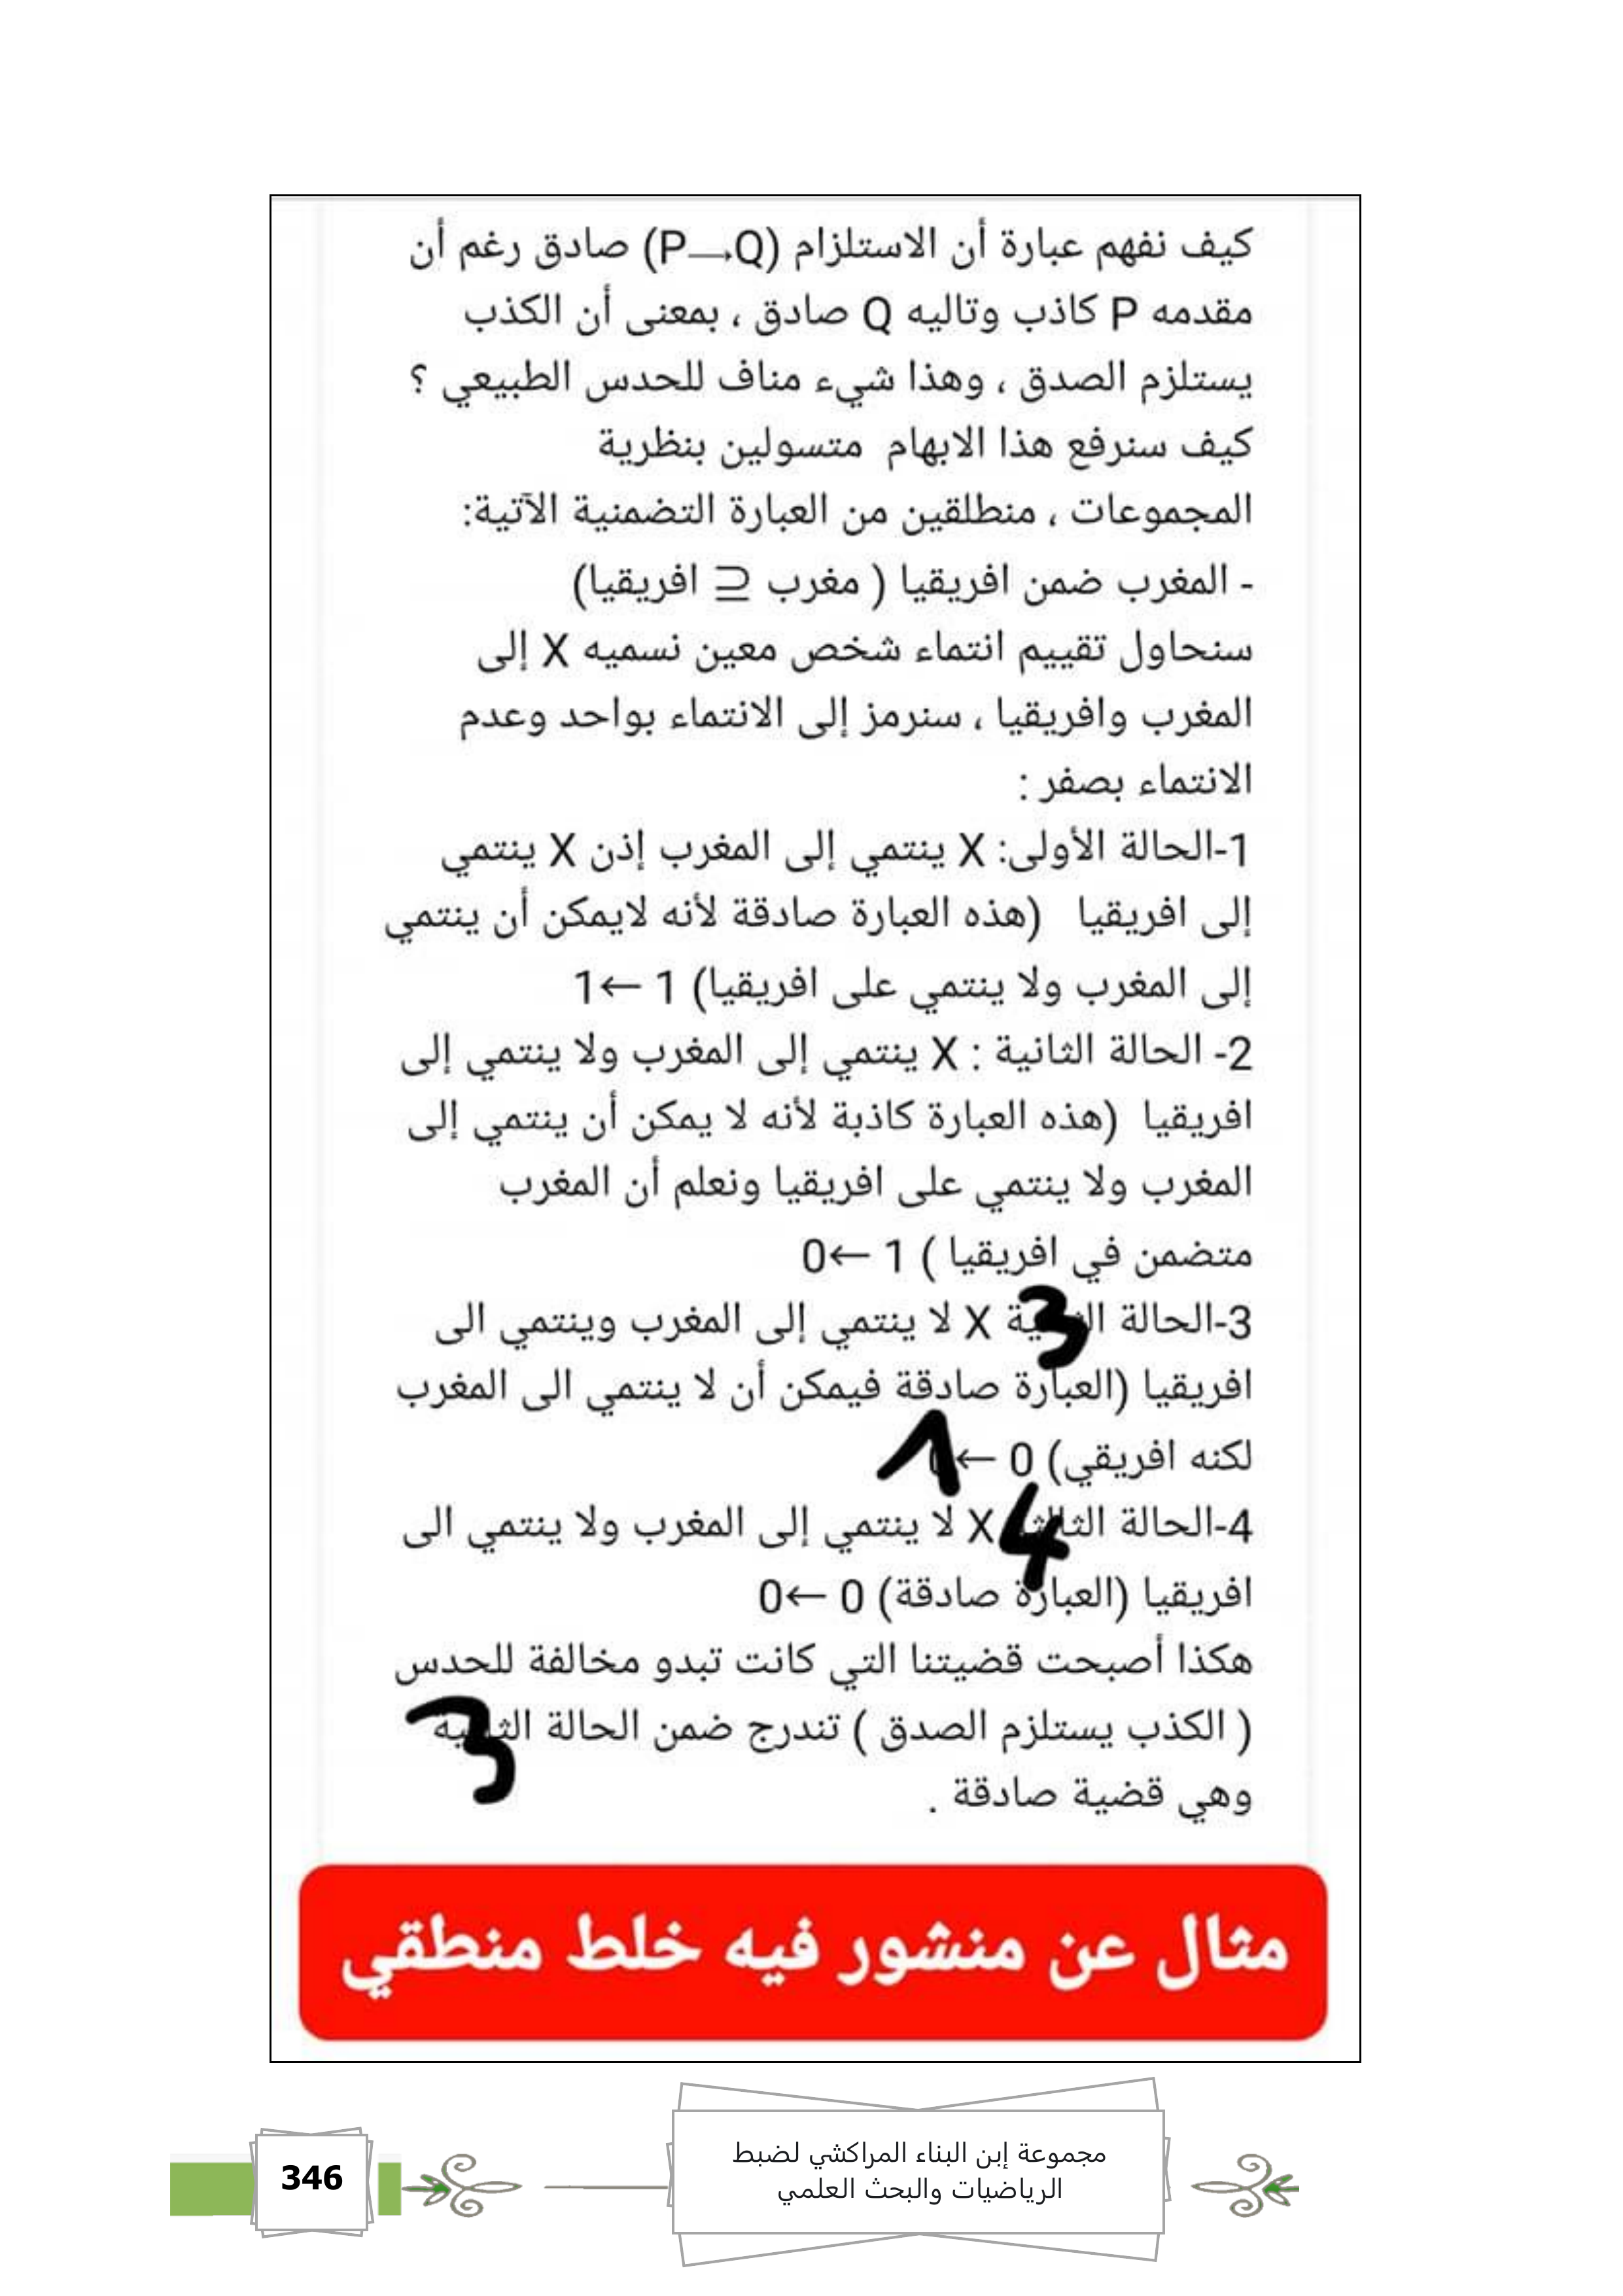 كيف نفهم عبارة أن الاستلزام (P→Q) صادق رغم أن
مقدمه P كاذب وتاليه Q صادق ، بمعنى أن الكذب
يستلزم الصدق ، وهذا شيء مناف للحدس الطبيعي ؟
كيف سنرفع هذا الابهام متسولين بنظرية
المجموعات ، منطلقين من العبارة التضمنية الآتية:
- المغرب ضمن افريقيا ( مغرب ⊆ افريقيا)
سنحاول تقييم انتماء شخص معين نسميه X إلى
المغرب وافريقيا ، سنرمز إلى الانتماء بواحد وعدم
الانتماء بصفر :
1-الحالة الأولى: X ينتمي إلى المغرب إذن X ينتمي
إلى افريقيا (هذه العبارة صادقة لأنه لايمكن أن ينتمي
إلى المغرب ولا ينتمي على افريقيا) 1 ←1
2- الحالة الثانية : X ينتمي إلى المغرب ولا ينتمي إلى
افريقيا (هذه العبارة كاذبة لأنه لا يمكن أن ينتمي إلى
المغرب ولا ينتمي على افريقيا ونعلم أن المغرب
متضمن في افريقيا ) 1 ←0
3-الحالة 3 X لا ينتمي إلى المغرب وينتمي الى
افريقيا (العبارة صادقة فيمكن أن لا ينتمي الى المغرب
لكنه افريقي) 0 ←1
4-الحالة 4 X لا ينتمي إلى المغرب ولا ينتمي الى
افريقيا (العبارة صادقة) 0 ←0
هكذا أصبحت قضيتنا التي كانت تبدو مخالفة للحدس
( الكذب يستلزم الصدق ) تندرج ضمن الحالة 3
وهي قضية صادقة .
مثال عن منشور فيه خلط منطقي
مجموعة إبن البناء المراكشي لضبط
الرياضيات والبحث العلمي
346